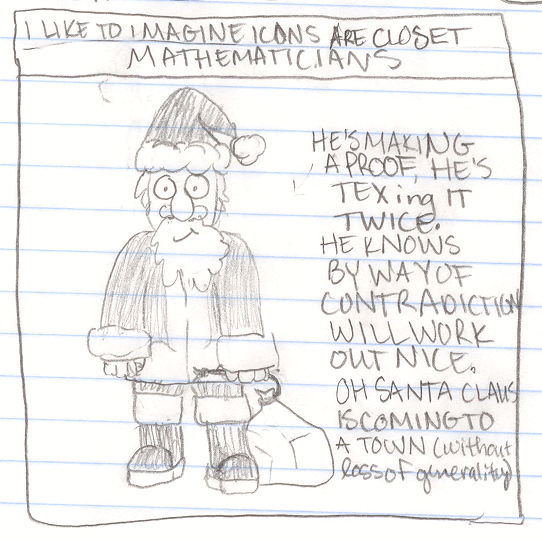 I LIKE TO IMAGINE ICONS ARE CLOSET
MATHEMATICIANS
HE'S MAKING
A PROOF, HE'S
TEXing IT
TWICE.
HE KNOWS
BY WAY OF
CONTRADICTION
WILL WORK
OUT NICE.
OH SANTA CLAUS
IS COMING TO
A TOWN (without
loss of generality)